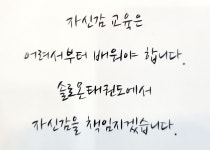 자신감 교육은
어려서부터 배워야 합니다.
솔로몬태권도에서
자신감을 책임지겠습니다.